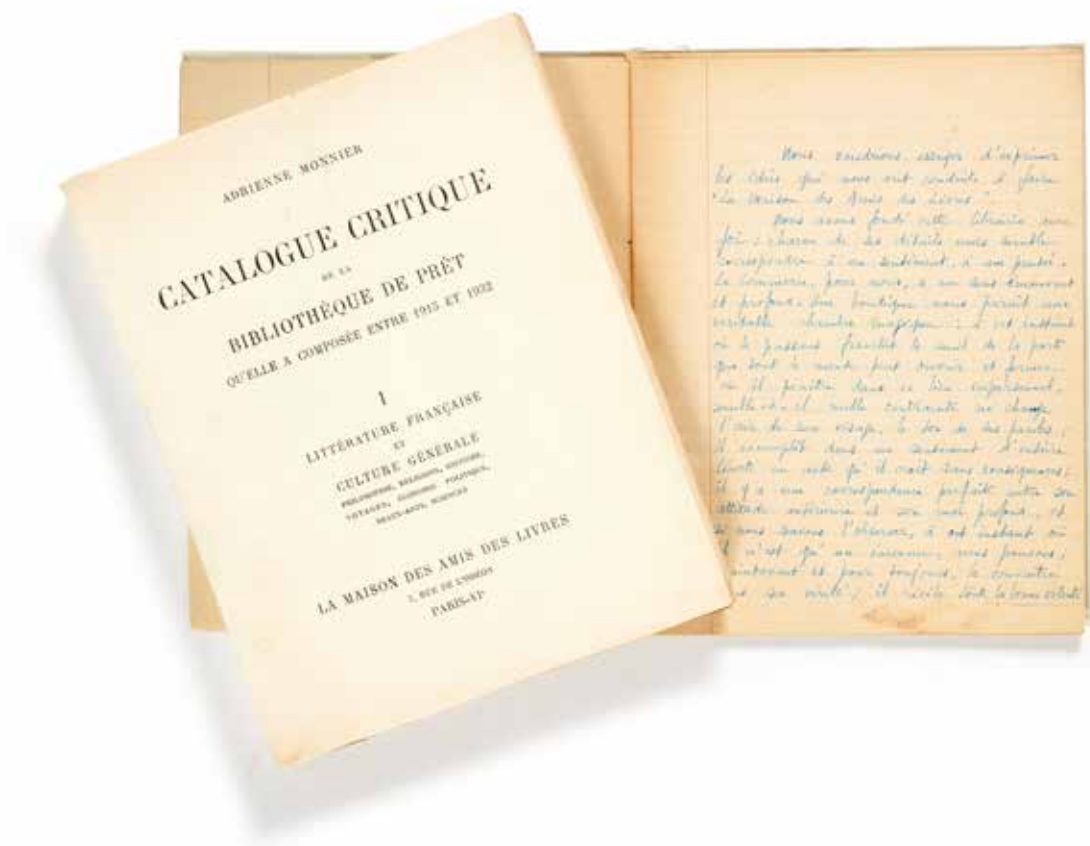 ADRIENNE MONNIER
CATALOGUE CRITIQUE
DE LA
BIBLIOTHÈQUE DE PRÊT
QU'ELLE A COMPOSÉE ENTRE 1915 ET 1932
I
LITTÉRATURE FRANÇAISE
ET
CULTURE GÉNÉRALE
PHILOSOPHIE, RELIGIONS, HISTOIRE,
VOYAGES, ÉCONOMIE POLITIQUE,
BEAUX-ARTS, SCIENCES
LA MAISON DES AMIS DES LIVRES
7, RUE DE L'ODÉON
PARIS-VIᵉ
Nous voudrions essayer d'exprimer
les idées qui nous ont conduits à faire
"La Maison des Amis des Livres"
Nous avons fondé cette librairie avec
foi ; chacun de ses détails nous semble
correspondre à un sentiment, à une pensée.
Le commerce, pour nous, a un sens émouvant
et profond. Une boutique nous paraît une
véritable chambre magique : à cet instant
où le passant franchit le seuil de la porte
que tout le monde peut ouvrir et fermer,
où il pénètre dans ce lieu impersonnel,
semble-t-il, nulle contrainte ne change
l'air de son visage, le ton de ses paroles ;
il accomplit dans un sentiment d'entière
liberté un acte qu'il croit sans conséquences ;
il y a une correspondance parfaite entre son
attitude extérieure et son moi profond, et
si nous savons l'observer, à cet instant où
il n'est qu'un inconnu, nous pouvons,
maintenant et pour toujours, le connaître
sa vérité ; il révèle toute la bonne volonté